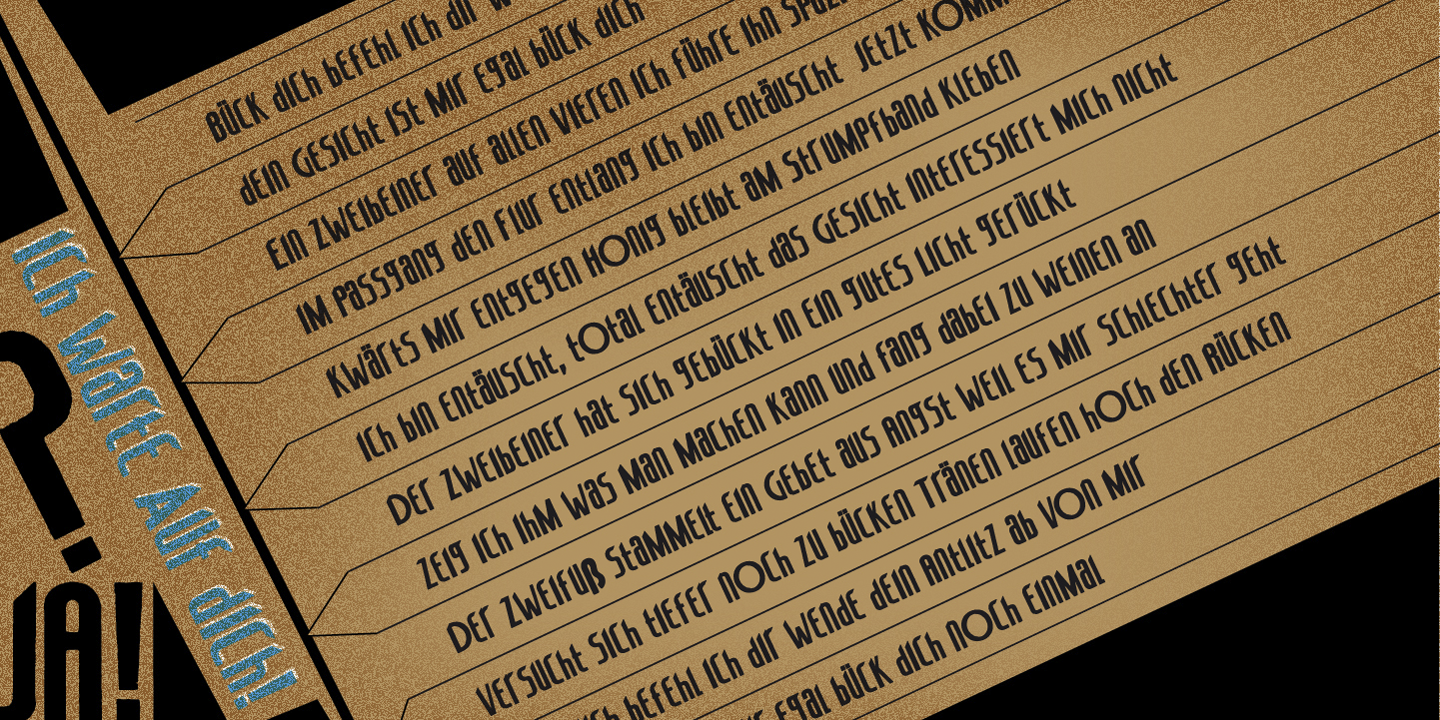 BÜCK dICh bEFEhl ICh dIr
dEIN GESICht ISt MIr EgAl bÜCK dICh
EIN ZWEIbEINEr AUF AllEN VIErEN ICh FÜhrE IhN
IM PASSgANg dEN FlUr ENtlANg ICh bIN ENtÄUSCht JEtZt
KWÄrtS MIr ENtgEgEN HONIg blEIbt AM StrUMPFbANd KlEbEN
ICh bIN ENtÄUSCht, tOtAl ENtÄUSCht dAS GESICht INtErESSIErt MICh NICht
DEr ZWEIbEINEr hAt SICh gEbÜCKt IN EIN gUtES LICht gErÜCKt
ZEIg ICh IhM WAS MAN MAChEN KANN UNd FANg dAbEI ZU WEINEN AN
DEr ZWEIFUß StAMMElt EIN GEbEt AUS ANgSt WEIl ES MIr SChlEChtEr gEht
VErSUCht SICh tIEFEr NOCh ZU bÜCKEN TrÄNEN lAUFEN hOCh dEN RÜCKEN
bEFEhl ICh dIr WENdE dEIN ANtlItZ Ab VON MIr
EgAl bÜCK dICh NOCh EINMAl
ICh WArtE AUF dICh!
?
JA!